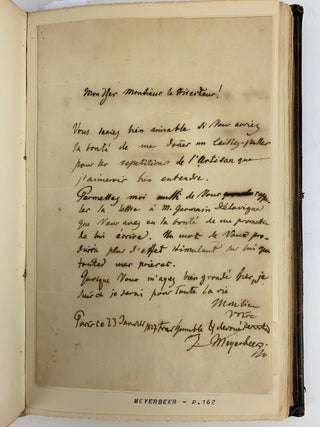 Mon cher monsieur le Directeur!
Vous seriez bien aimable si Vous auriez
la bonté de me donner un laissez-passer
pour les repetitions de l'Artisan que
j'aimerois bien entendre.
Permettez moi aussi de Vous rappe
ler la lettre à M. Germain Delavigne
que Vous avez eu la bonté de me promettre
de lui écrire. Un mot de Vous pro
duira plus d'effet stimulant sur lui que
toutes mes prieres.
Quoique Vous m'ayez bien grondé hier, je
suis je serai pour toute la vie
Monsieur
Votre
Paris ce 23 Janvier très humble & dévoué
Meyerbeer
MEYERBEER - p.162